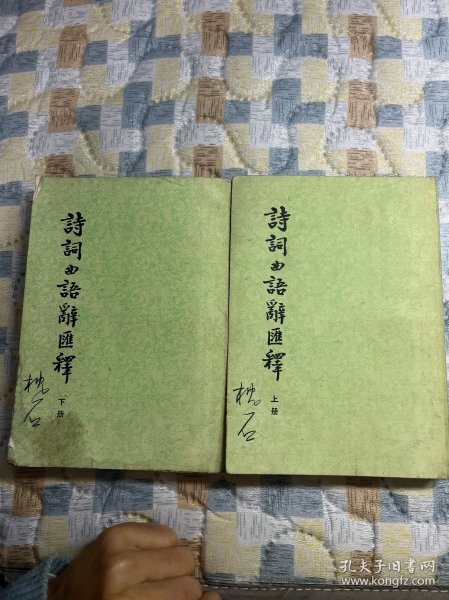 詩詞曲語辭匯釋
下册
枕石
詩詞曲語辭匯釋
上册
枕石
孔夫子旧书网
www.kongfz.com